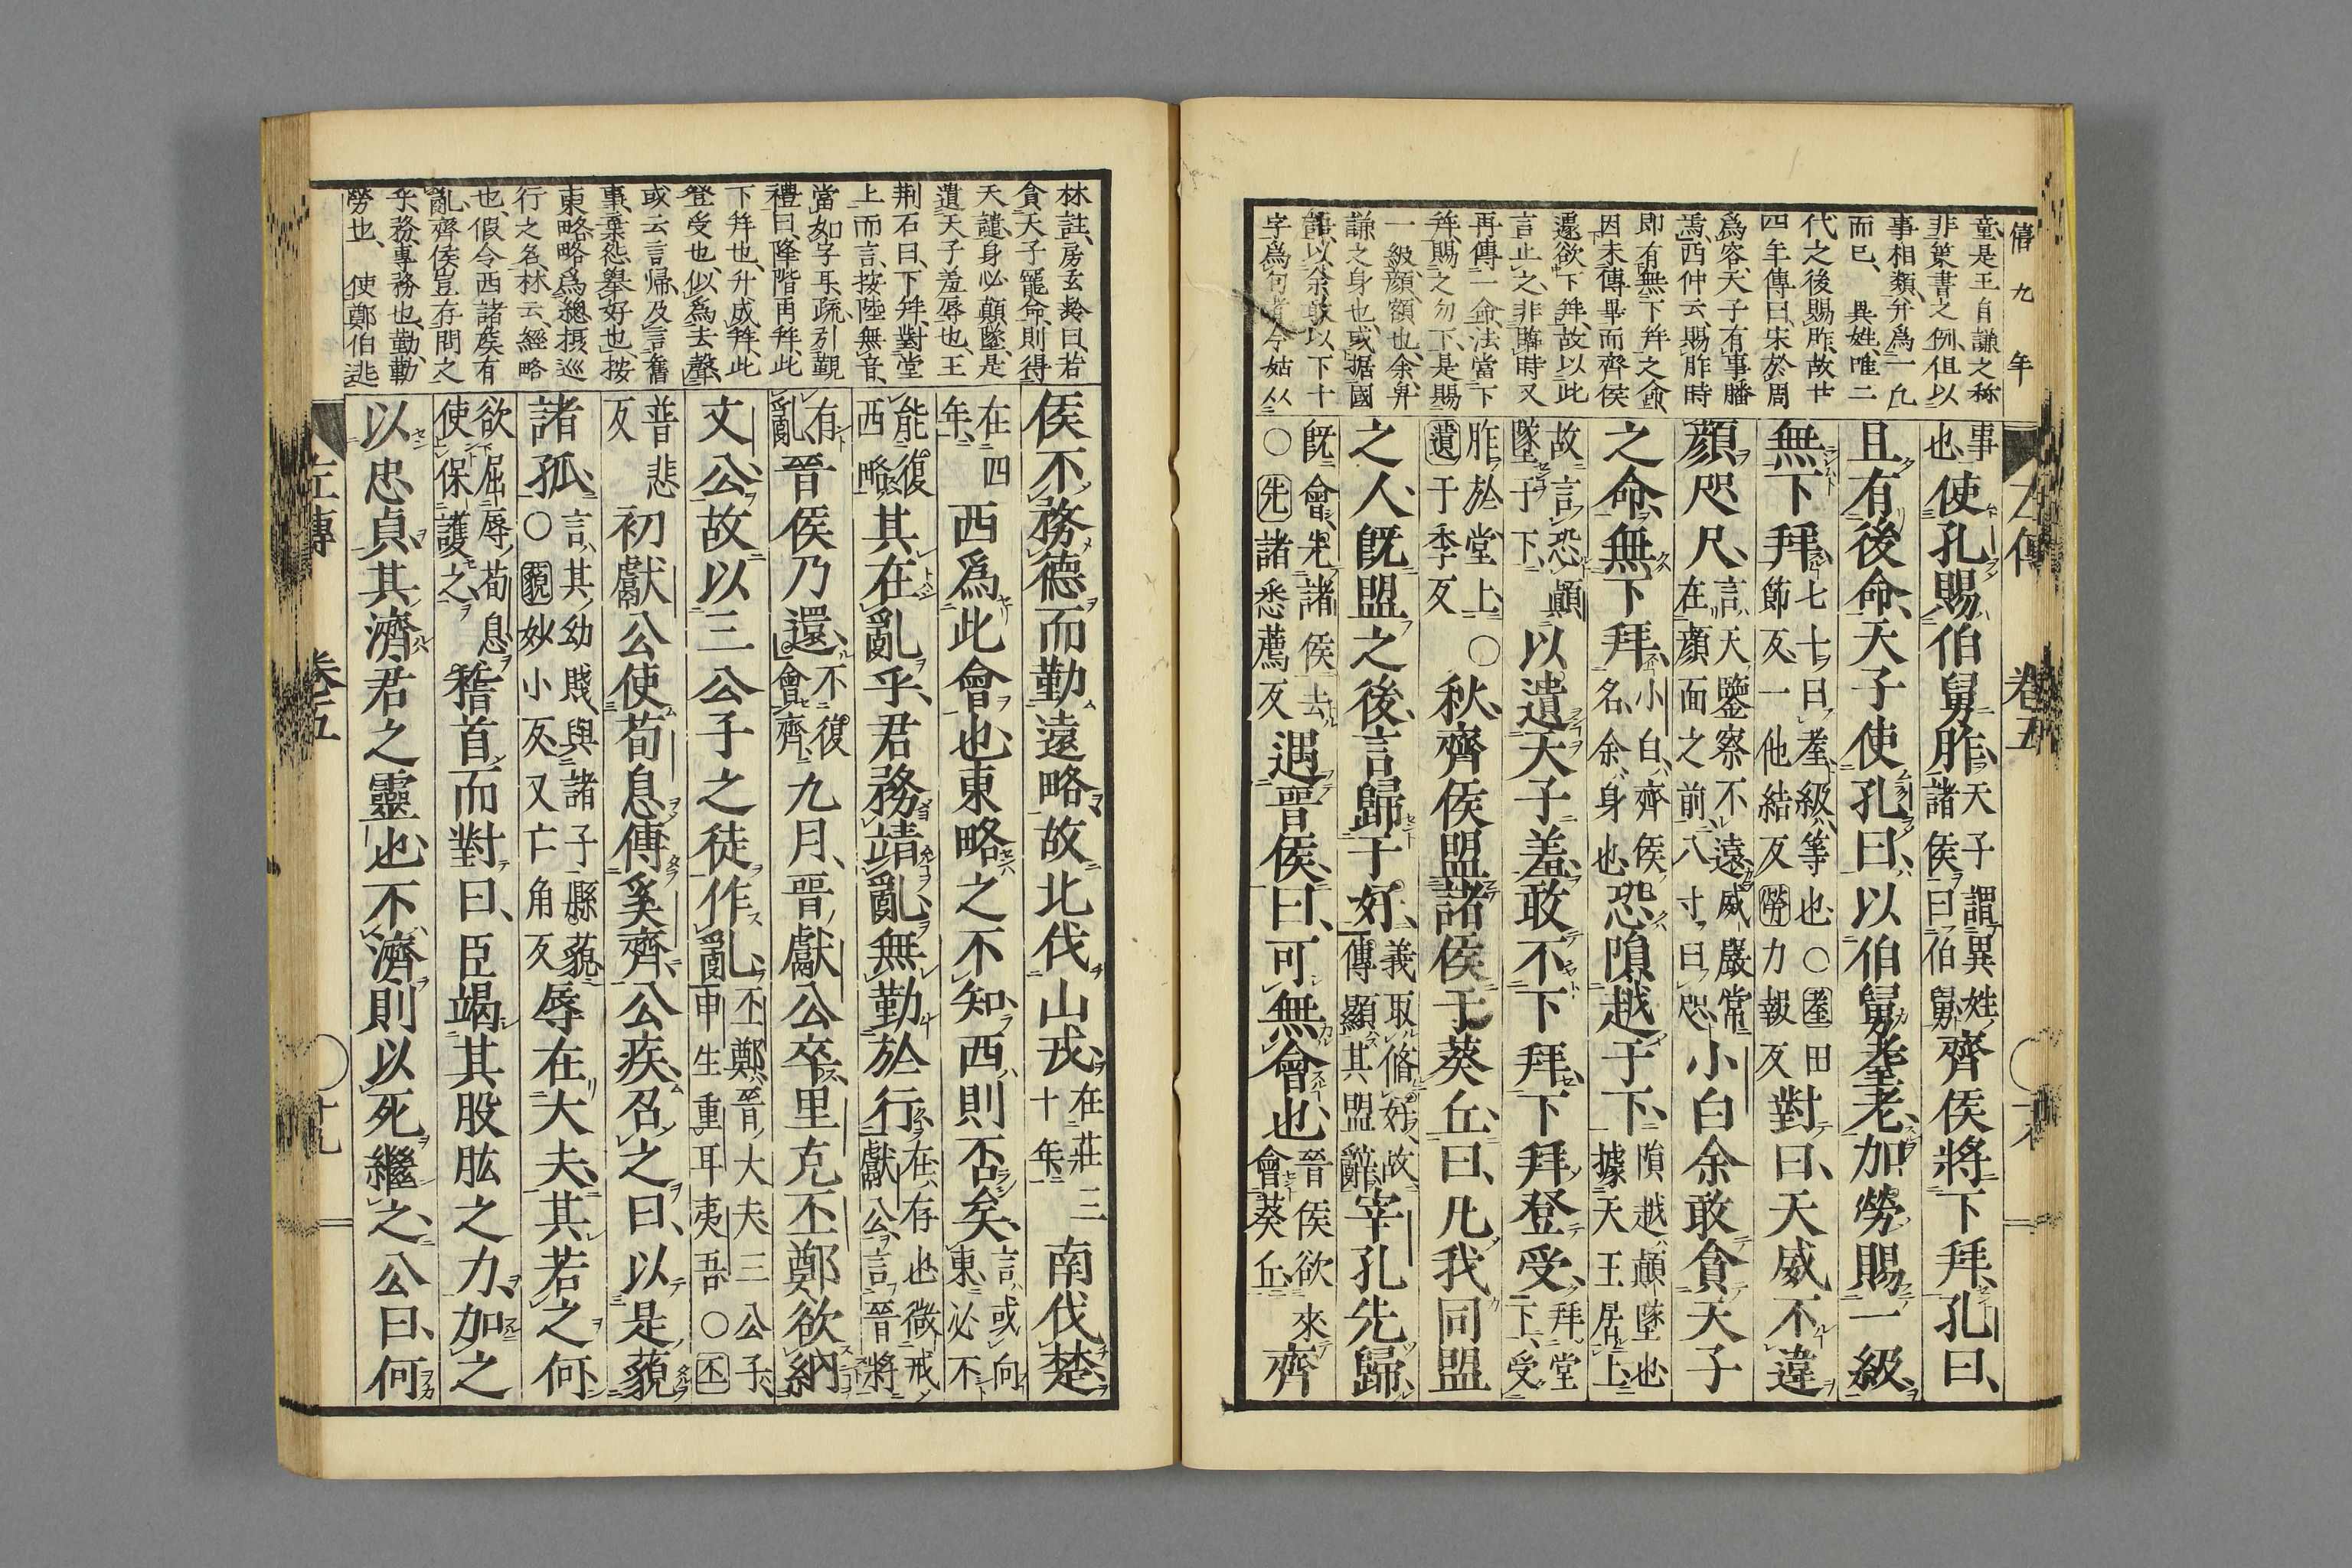 僖九年
童是王自謙之称
非策書之例但以
事相類并爲一凡
而已 異姓唯二
代之後賜胙故廿
四年傳曰宋於周
爲容天子有事膰
焉西仲云賜胙時
即有無下拜之命
因未傳畢而齊侯
遽欲下拜故以此
言止之非臨時又
再傳一命法當下
拜賜之勿下是賜
一級顔額也余
謙之身也或据國
語以余敢以下十
字爲句者今姑从
左傳 卷五
事也使孔賜伯舅胙天子謂異姓諸侯曰伯舅齊侯將下拜孔曰
且有後命天子使孔曰以伯舅耋老加勞賜一級
無下拜七十曰耋級等也○耋田節反一他結反勞力報反對曰天威不違
顔咫尺言天鑒察不遠威嚴常在顔面之前八寸曰咫小白余敢貪天子
之命無下拜小白齊侯名余身也恐隕越于下隕越顚墜也據天王居上
故言恐顚墜于下以遺天子羞敢不下拜下拜登受拜堂下受
胙於堂上○遺于季反秋齊侯盟諸侯于葵丘曰凡我同盟
之人既盟之後言歸于好義取脩好故傳顯其盟辭宰孔先歸
既會先諸侯去○先諸悉薦反遇晉侯曰可無會也晉侯欲來會葵丘齊
林註房玄齡曰若
貪天子寵命則得
天譴身必顚墜是
遺天子羞辱也王
荆石曰下拜對堂
上而言按陸無音
當如字耳疏引覲
禮曰降階再拜此
下拜也升成拜此
登受也似爲去聲
或云言歸及言舊
事棄怨擧好也按
東略略爲總摂巡
行之名林云經略
也假令西諸侯有
亂齊侯豈存問之
乎務專務也勤勤
勞也 使鄭伯逃
侯不務德而勤遠略故北伐山戎在莊三十年南伐楚
在四年西爲此會也東略之不知西則否矣言或向東必不
能復西略其在亂乎君務靖亂無勤於行在存也微戒獻公言晉將
有亂晉侯乃還不復會齊九月晉獻公卒里克丕鄭欲納
文公故以三公子之徒作亂丕鄭晉大夫三公子申生重耳夷吾○丕
普悲反初獻公使荀息傅奚齊公疾召之曰以是藐
諸孤言其幼賤與諸子縣藐○藐妙小反又亡角反辱在大夫其若之何
欲屈辱荀息使保護之稽首而對曰臣竭其股肱之力加之
以忠貞其濟君之靈也不濟則以死繼之公曰何
左傳 卷五 十九